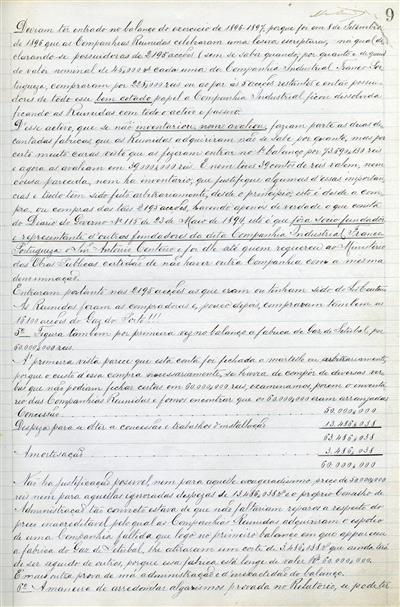 9
Deviam ter entrado no balanço do exercicio de 1896-1897, porque foi em 1 de Setembro
de 1896 que as Companhias Reunidas celebraram uma escriptura, na qual de-
clarando se possuidoras de 2195 acções (sem se saber quando, por quanto e de quem)
do valor nominal de 45,000 rs cada uma da Companhia Industrial Franco-Por-
tugueza, compraram por 225,000 reis ou ao par as 5 acções restantes e então possui-
doras de todo esse bem cotado papel a Companhia Industrial ficou dissolvida
ficando as Reunidas com todo o activo e passivo.
D'esse activo, que se não inventariou, nem avaliou, faziam parte as duas de-
cantadas fabricas, que as Reunidas adquiriram não se sabe por quanto, mas por
certo muito caras visto que as figuram entrar no 1º balanço por
e agora as avaliam em 39,000,000 reis. E nem taes 39 contos de reis valem, nem
cousa parecida, nem ha inventario, que justifique algumas d'essas importan-
cias e tudo tem sido feito arbitrariamente, desde o principio, isto é desde a com-
pra, ou compras das taes 2195 acções, havendo apenas de verdade o que consta
do Diario do Governo Nº 115 de 23 de Maio de 1894, isto é que fôra socio fundador
e representante d'outros fundadores da dita Companhia Industrial Franco
Portugueza o Snr. Antonio Centeno e foi elle até quem requereu ao Ministerio
das Obras Publicas certidão de não haver outra Companhia com a mesma
denominação.
Entraram portanto nas 2195 acções as que eram ou tinham sido do Sr Centeno.
As Reunidas foram as compradoras e, pouco depois, compravam tambem as
acções do Gaz do Porto!!!
5º Figura tambem por primeira vez no balanço a fabrica de Gaz de Setubal, por
60,000,000 reis.
A' primeira vista parece que esta conta foi fechada a martello ou arbitrariamente,
porque o custo d'essa compra necessariamente, se havia de compôr de diversas ver-
bas que não podiam fechar certas em 60,000,000 reis, examinamos porem o inventa-
rio das Companhias Reunidas e fomos encontrar que os 60,000,000 eram arranjados
Concessão 50,000,000
Despeza para obter a concessão e trabalhos d'installação 13,486,038
63,486,038
Amortisação 3,486,038
60,000,000
Não ha justificação possivel, nem para aquelle exageradissimo preço de 50,000,000
reis nem para aquellas ignoradas despezas de 13,486,038 rs e o proprio Conselho de
Administração tão convicto estava de que não faltariam reparos a respeito do
preço inacreditavel pelo qual as Companhias Reunidas adquiriram o espolio
de uma Companhia fallida que logo no primeiro balanço em que appareceu
a fabrica do Gaz de Setubal, lhe atiraram um corte de 3,486,038 rs que ainda terá
de ser seguido de outros, porque essa fabrica está longe de valer Rs 60,000,000.
E mais outra prova de má administração e d'inexactidão do balanço.
6º A maneira de arredondar algarismos provada no Relatorio, a poder ter